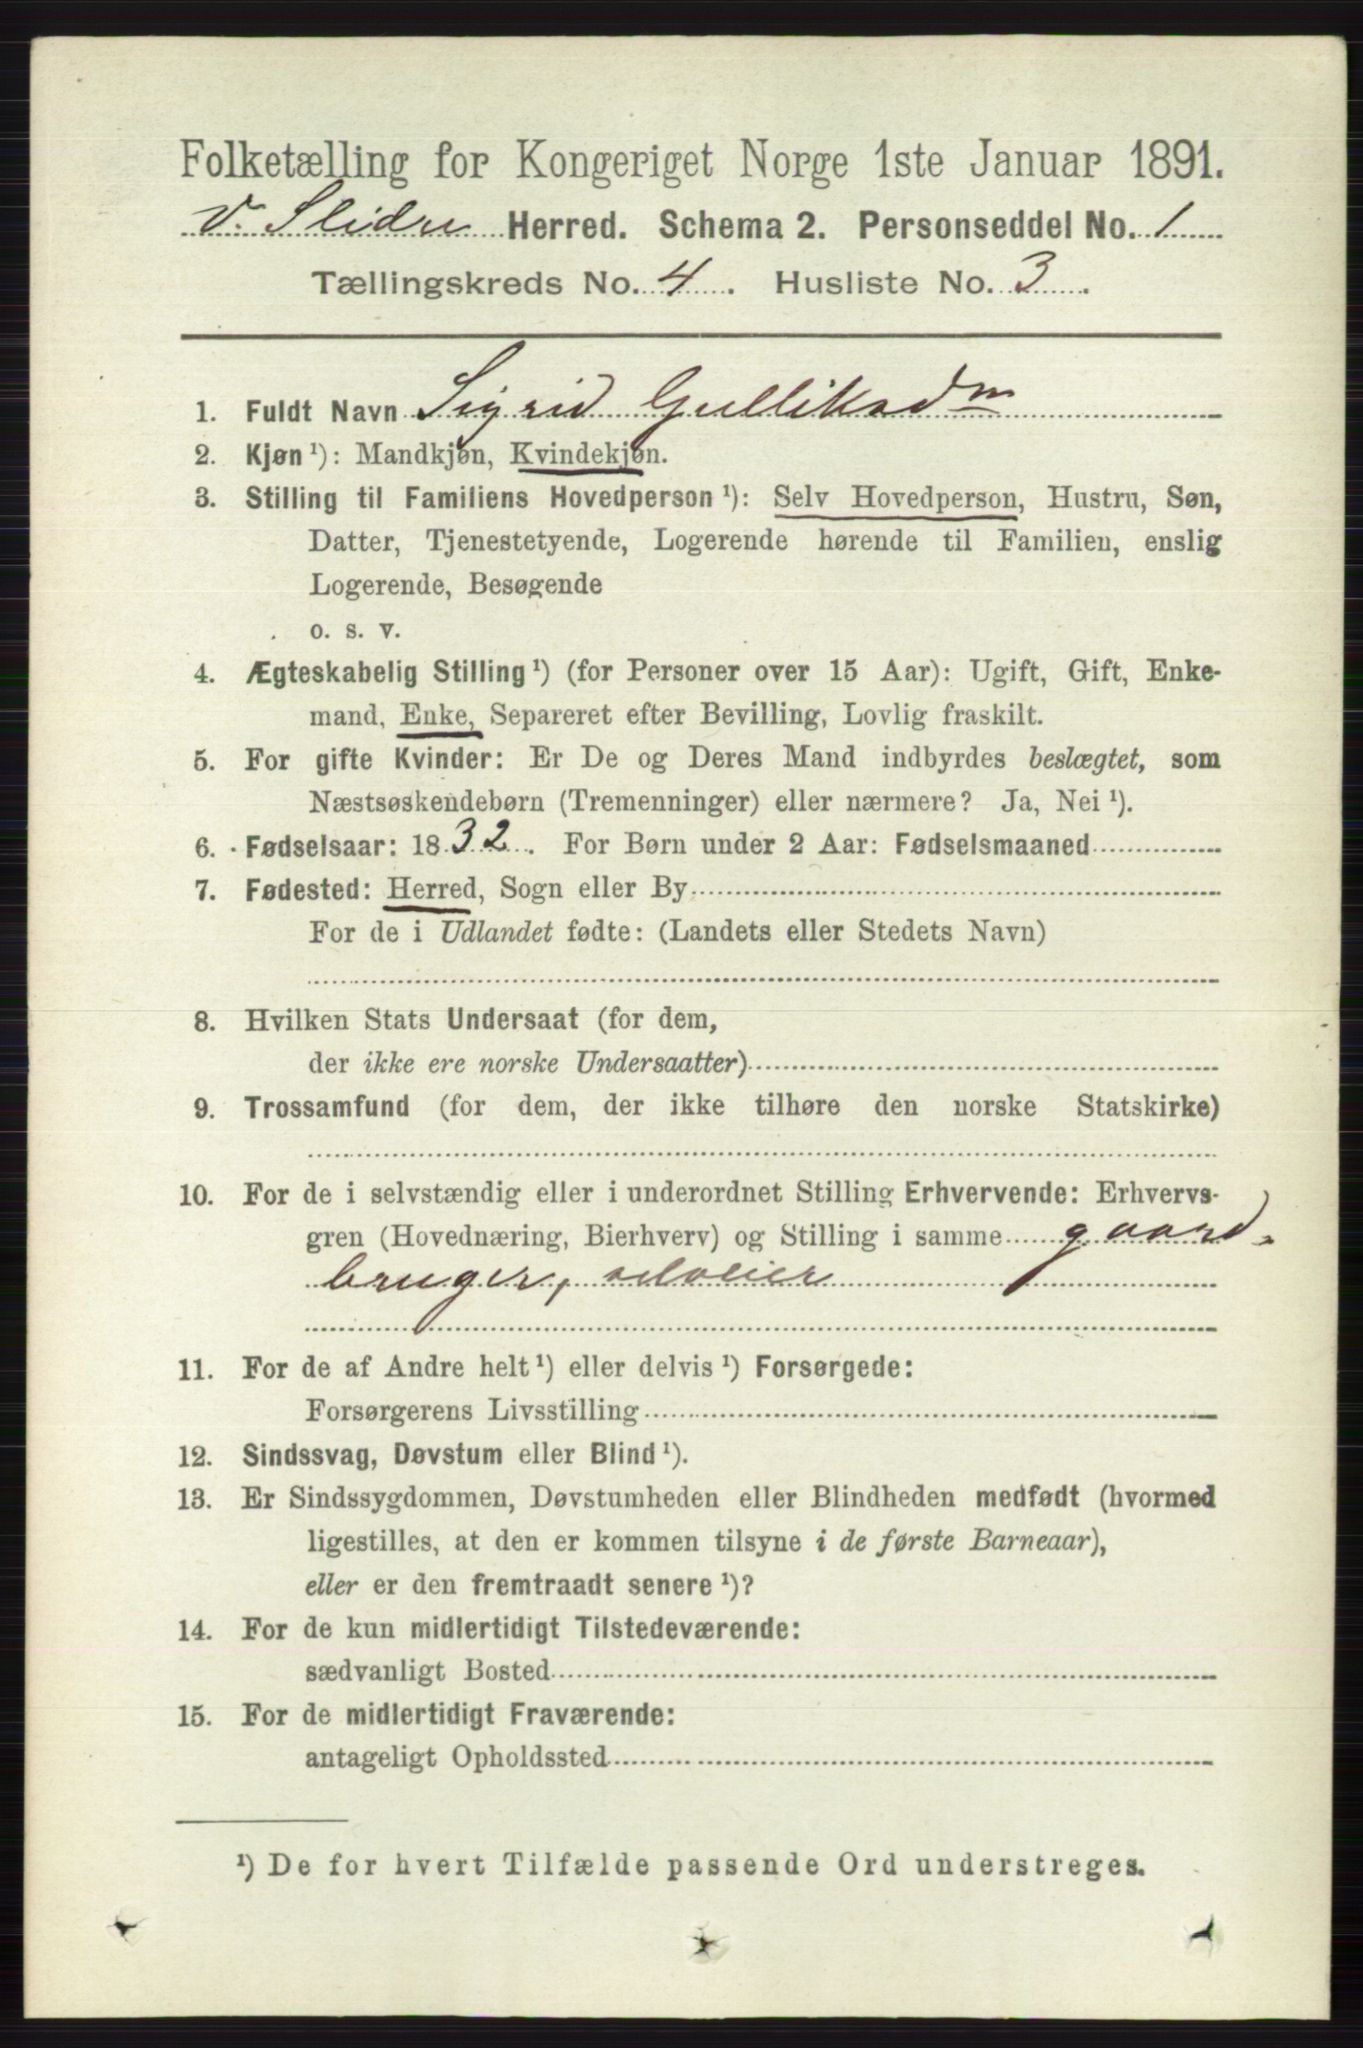 Folketælling for Kongeriget Norge 1ste Januar 1891.
V. Slidre Herred. Schema 2. Personseddel No. 1
Tællingskreds No. 4. Husliste No. 3.
1. Fuldt Navn Sigrid Gulliksdm
2. Kjøn ¹): Mandkjøn, Kvindekjøn.
3. Stilling til Familiens Hovedperson ¹): Selv Hovedperson, Hustru, Søn,
Datter, Tjenestetyende, Logerende hørende til Familien, enslig
Logerende, Besøgende
o. s. v.
4. Ægteskabelig Stilling ¹) (for Personer over 15 Aar): Ugift, Gift, Enke-
mand, Enke, Separeret efter Bevilling, Lovlig fraskilt.
5. For gifte Kvinder: Er De og Deres Mand indbyrdes beslægtet, som
Næstsøskendebørn (Tremenninger) eller nærmere? Ja, Nei ¹).
6. Fødselsaar: 1832. For Børn under 2 Aar: Fødselsmaaned
7. Fødested: Herred, Sogn eller By
For de i Udlandet fødte: (Landets eller Stedets Navn)
8. Hvilken Stats Undersaat (for dem,
der ikke ere norske Undersaatter)
9. Trossamfund (for dem, der ikke tilhøre den norske Statskirke)
10. For de i selvstændig eller i underordnet Stilling Erhvervende: Erhvervs-
gren (Hovednæring, Bierhverv) og Stilling i samme gaard-
bruger, selveier
11. For de af Andre helt ¹) eller delvis ¹) Forsørgede:
Forsørgerens Livsstilling
12. Sindssvag, Døvstum eller Blind ¹).
13. Er Sindssygdommen, Døvstumheden eller Blindheden medfødt (hvormed
ligestilles, at den er kommen tilsyne i de første Barneaar),
eller er den fremtraadt senere ¹)?
14. For de kun midlertidigt Tilstedeværende:
sædvanligt Bosted
15. For de midlertidigt Fraværende:
antageligt Opholdssted
¹) De for hvert Tilfælde passende Ord understreges.